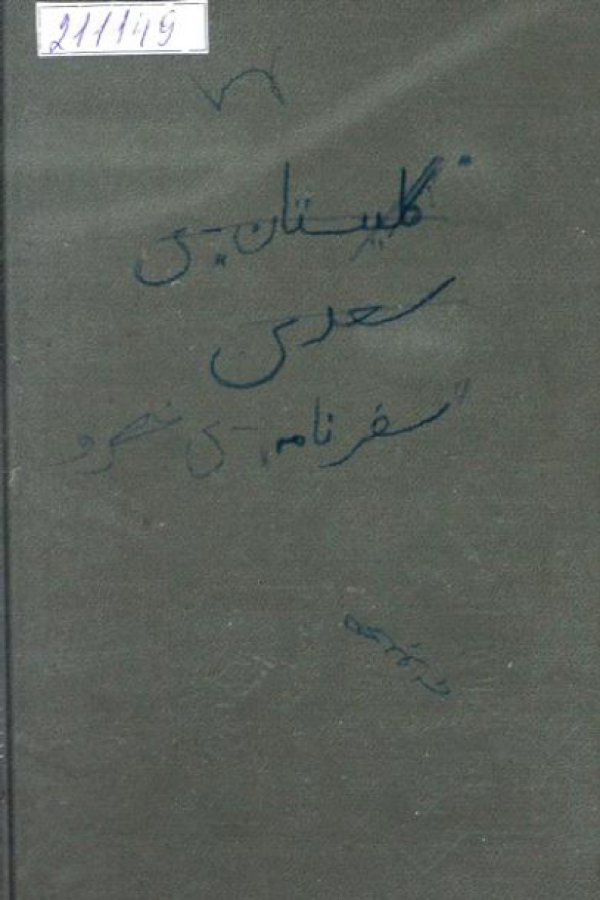 211149
گلیستان ـی
سعدی
"سفرنامه ـی خسرو